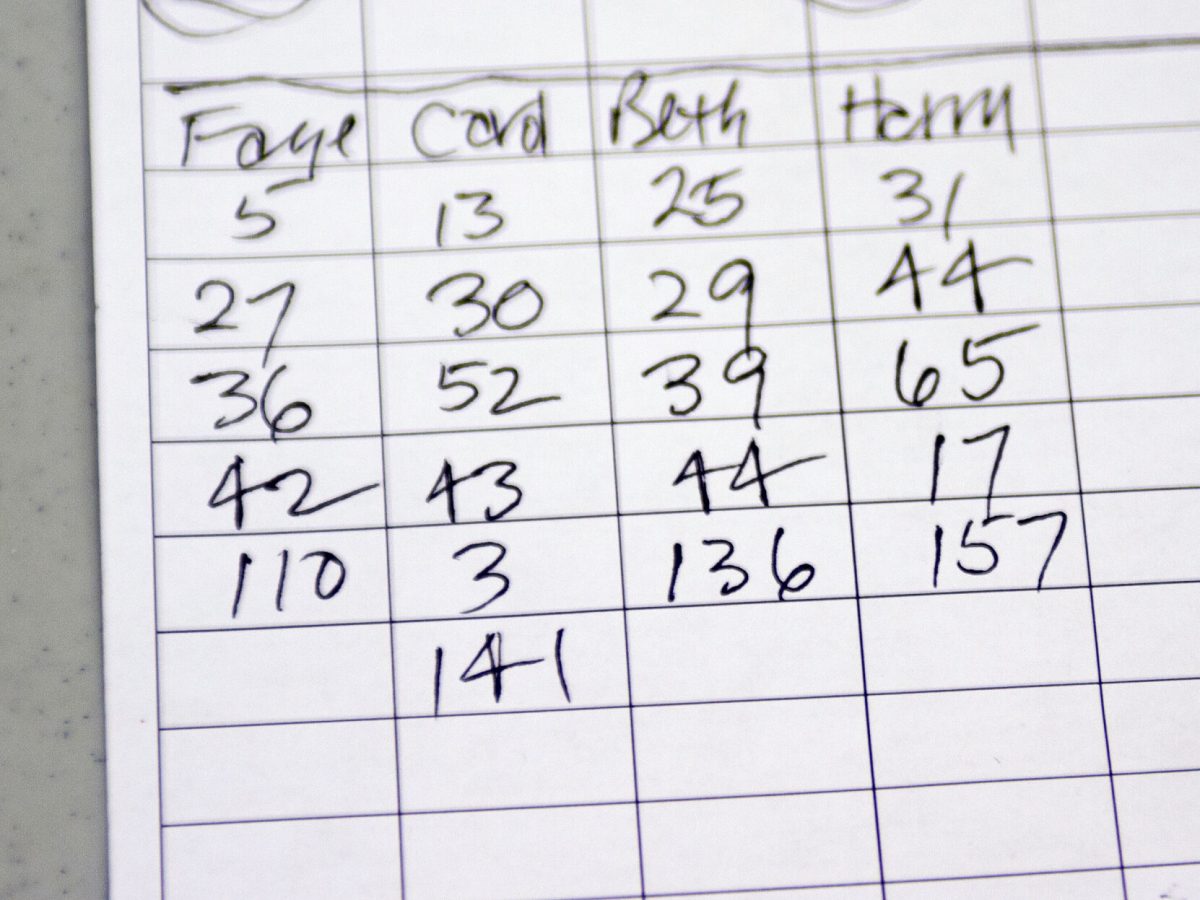 Faye Carol Beth Harry
5 13 25 31
27 30 29 44
36 52 39 65
42 43 44 17
110 3 136 157
141